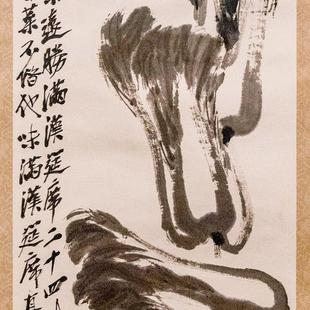 遠勝滿漢筵席二十四
菜不借他味滿漢筵席